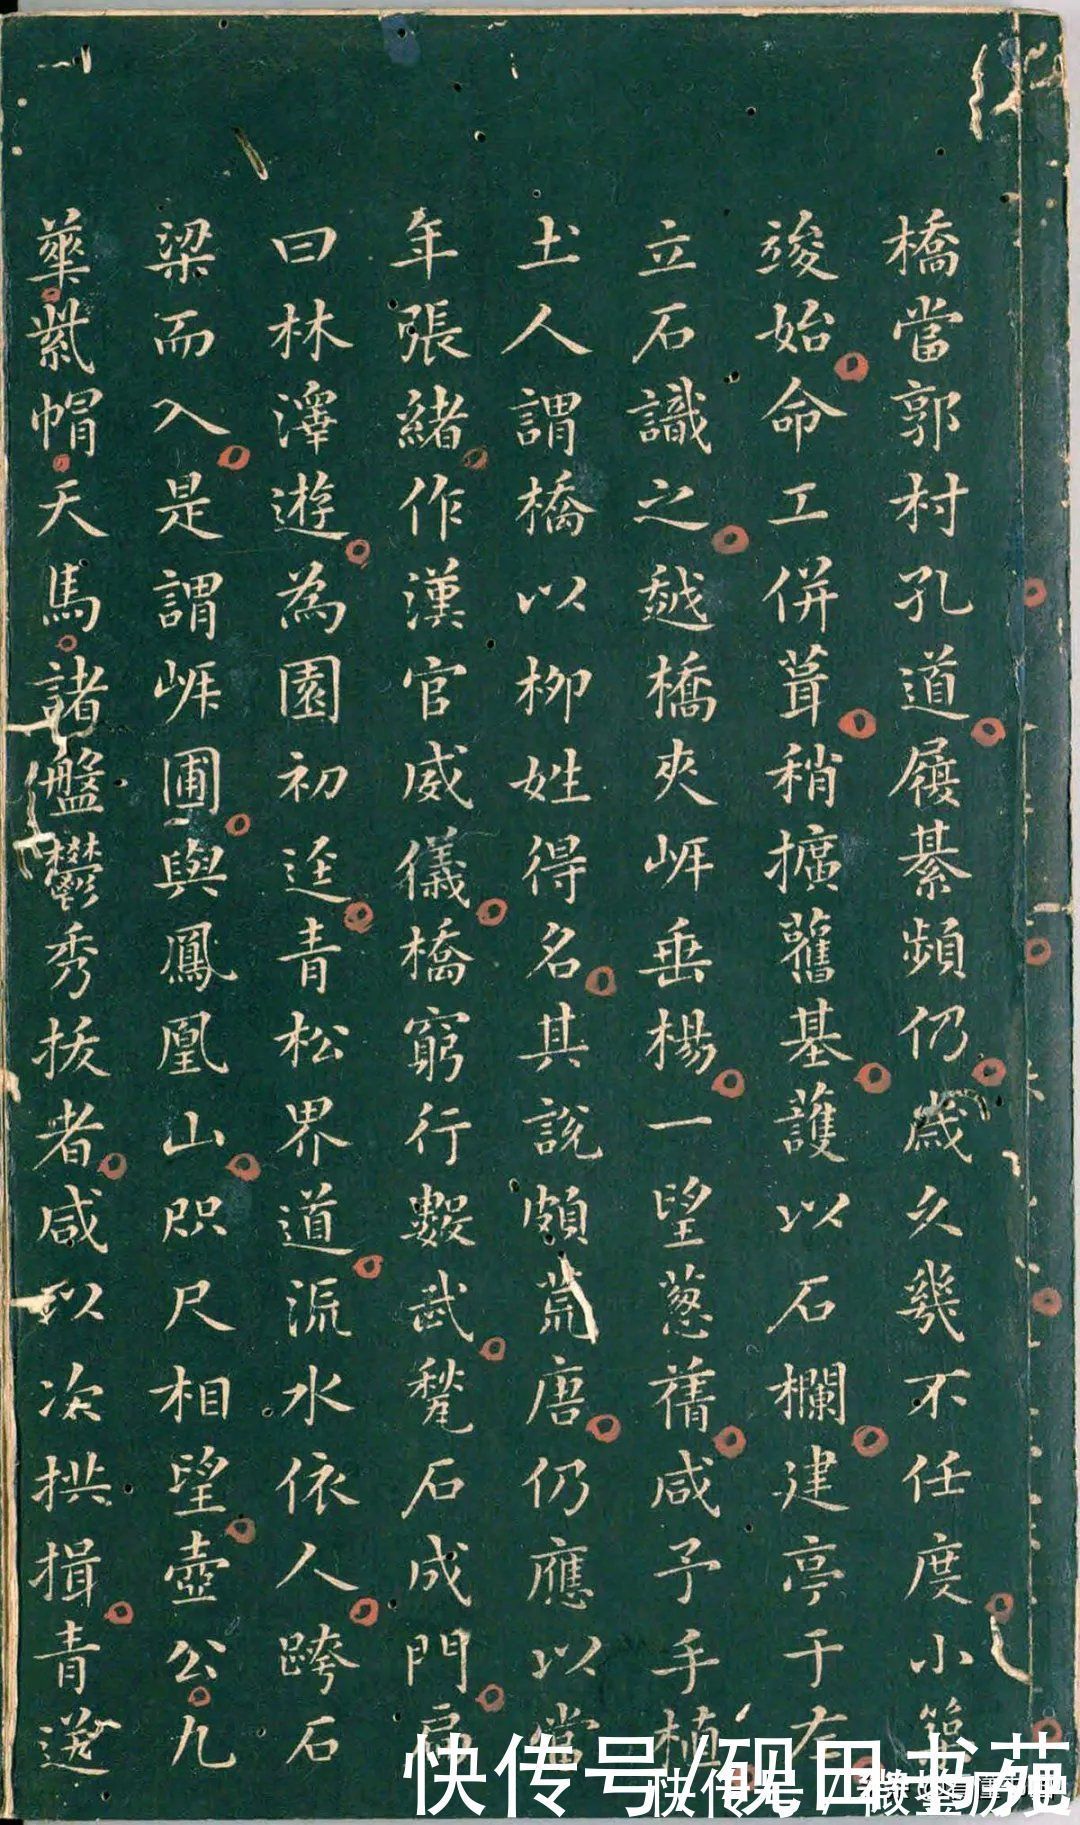 橋當郭村孔道屨綦頻仍歲久幾不任度小築
竣始命工併葺稍擴舊基護以石欄建亭于右
立石識之越橋夾岸垂楊一望葱蒨咸予手植
土人謂橋以柳姓得名其說頗荒唐仍應以當
年張緒作漢官威儀橋窮行數武甃石成門扁
曰林澤遊為園初逕青松界道流水依人跨石
梁而入是謂岸圃與鳳凰山咫尺相望壺公九
華紫帽天馬諸盤鬱秀拔者咸以次拱揖青送
快传号/砚田书苑
快传号